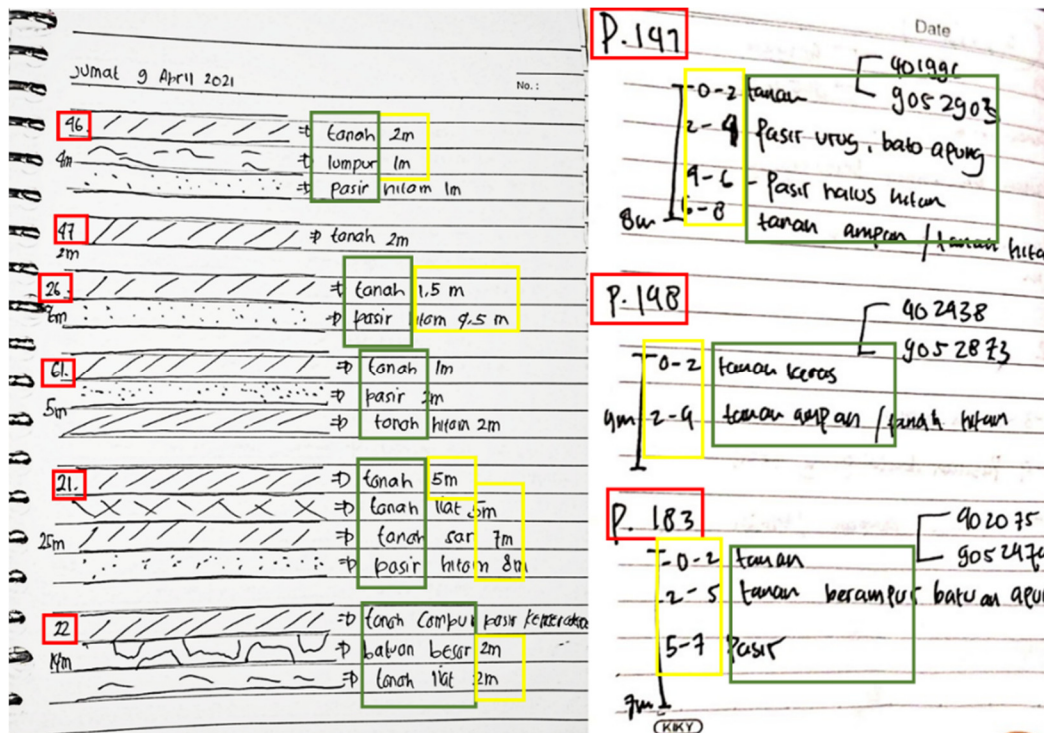 Jumat 9 April 2021
No. :
46. ⇒ tanah 2m
4m ⇒ lumpur 1m
⇒ pasir hitam 1m
47 ⇒ tanah 2m
2m
26 ⇒ tanah 1,5 m
⇒ pasir hitam 4,5 m
61. ⇒ tanah 1m
⇒ pasir 2m
5m ⇒ tanah hitam 2m
21. ⇒ tanah 5m
⇒ tanah liat 5m
25m ⇒ tanah sar 7m
⇒ pasir hitam 8m
22 ⇒ tanah campur pasir
14m ⇒ batuan besar 2m
⇒ tanah liat 2m
Date
P.147
9052903
0-2 tanah
2-4 pasir urug, batu apung
4-6 - pasir halus hitam
6-8 tanah ampan / tanah hita
8m
P.148
402438
9052873
0-2 tanah keras
9m 2-9 tanah ampan / tanah hitam
P. 183
402075
0-2 tanah
2-5 tanah berampur batuan apun
5-7 Pasir
7m
KIKY